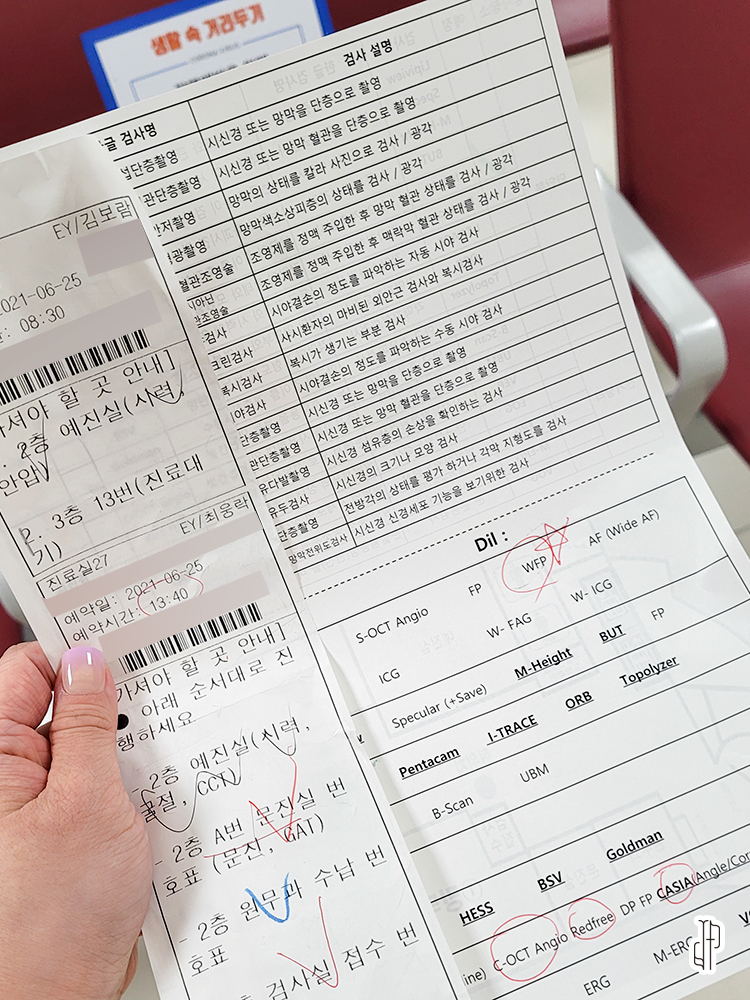 생활 속 거리두기
검사명
검사 설명
단층촬영
시신경 또는 망막을 단층으로 촬영
관단층촬영
시신경 또는 망막 혈관을 단층으로 촬영
저촬영
망막의 상태를 칼라 사진으로 검사 / 광각
광촬영
망막색소상피층의 상태를 검사 / 광각
혈관조영술
조영제를 정맥 주입한 후 망막 혈관 상태를 검사 / 광각
조영제를 정맥 주입한 후 맥락막 혈관 상태를 검사 / 광각
검사
시야결손의 정도를 파악하는 자동 시야 검사
크린검사
사시환자의 마비된 외안근 검사와 복시검사
복시검사
복시가 생기는 부분 검사
야검사
시야결손의 정도를 파악하는 수동 시야 검사
단층촬영
시신경 또는 망막을 단층으로 촬영
관단층촬영
시신경 또는 망막 혈관을 단층으로 촬영
유다발촬영
시신경 섬유층의 손상을 확인하는 검사
유두검사
시신경의 크기나 모양 검사
단층촬영
전방각의 상태를 평가 하거나 각막 지형도를 검사
망막전위도검사
시신경 신경세포 기능을 보기위한 검사
EY/김보람
2021-06-25
08:30
가셔야 할 곳 안내]
2층 예진실(시력,
안압)
2. 3층 13번(진료대
기)
EY/최웅락
진료실27
예약일: 2021-06-25
예약시간: 13:40
가셔야 할 곳 안내]
● 아래 순서대로 진
행하세요
- 2층 예진실(시력,
굴절, CCT)
- 2층 A번 문진실 번
호표 (문진, GAT)
- 2층 원무과 수납 번
호표
층 검사실 접수 번
Dil :
S-OCT Angio FP WFP AF (Wide AF)
ICG W- FAG W- ICG
Specular (+Save) M-Height BUT FP
Pentacam I-TRACE ORB Topolyzer
B-Scan UBM
HESS BSV Goldman
ine) C-OCT Angio Redfree DP FP CASIA(Angle/Cor
ERG M-ERG